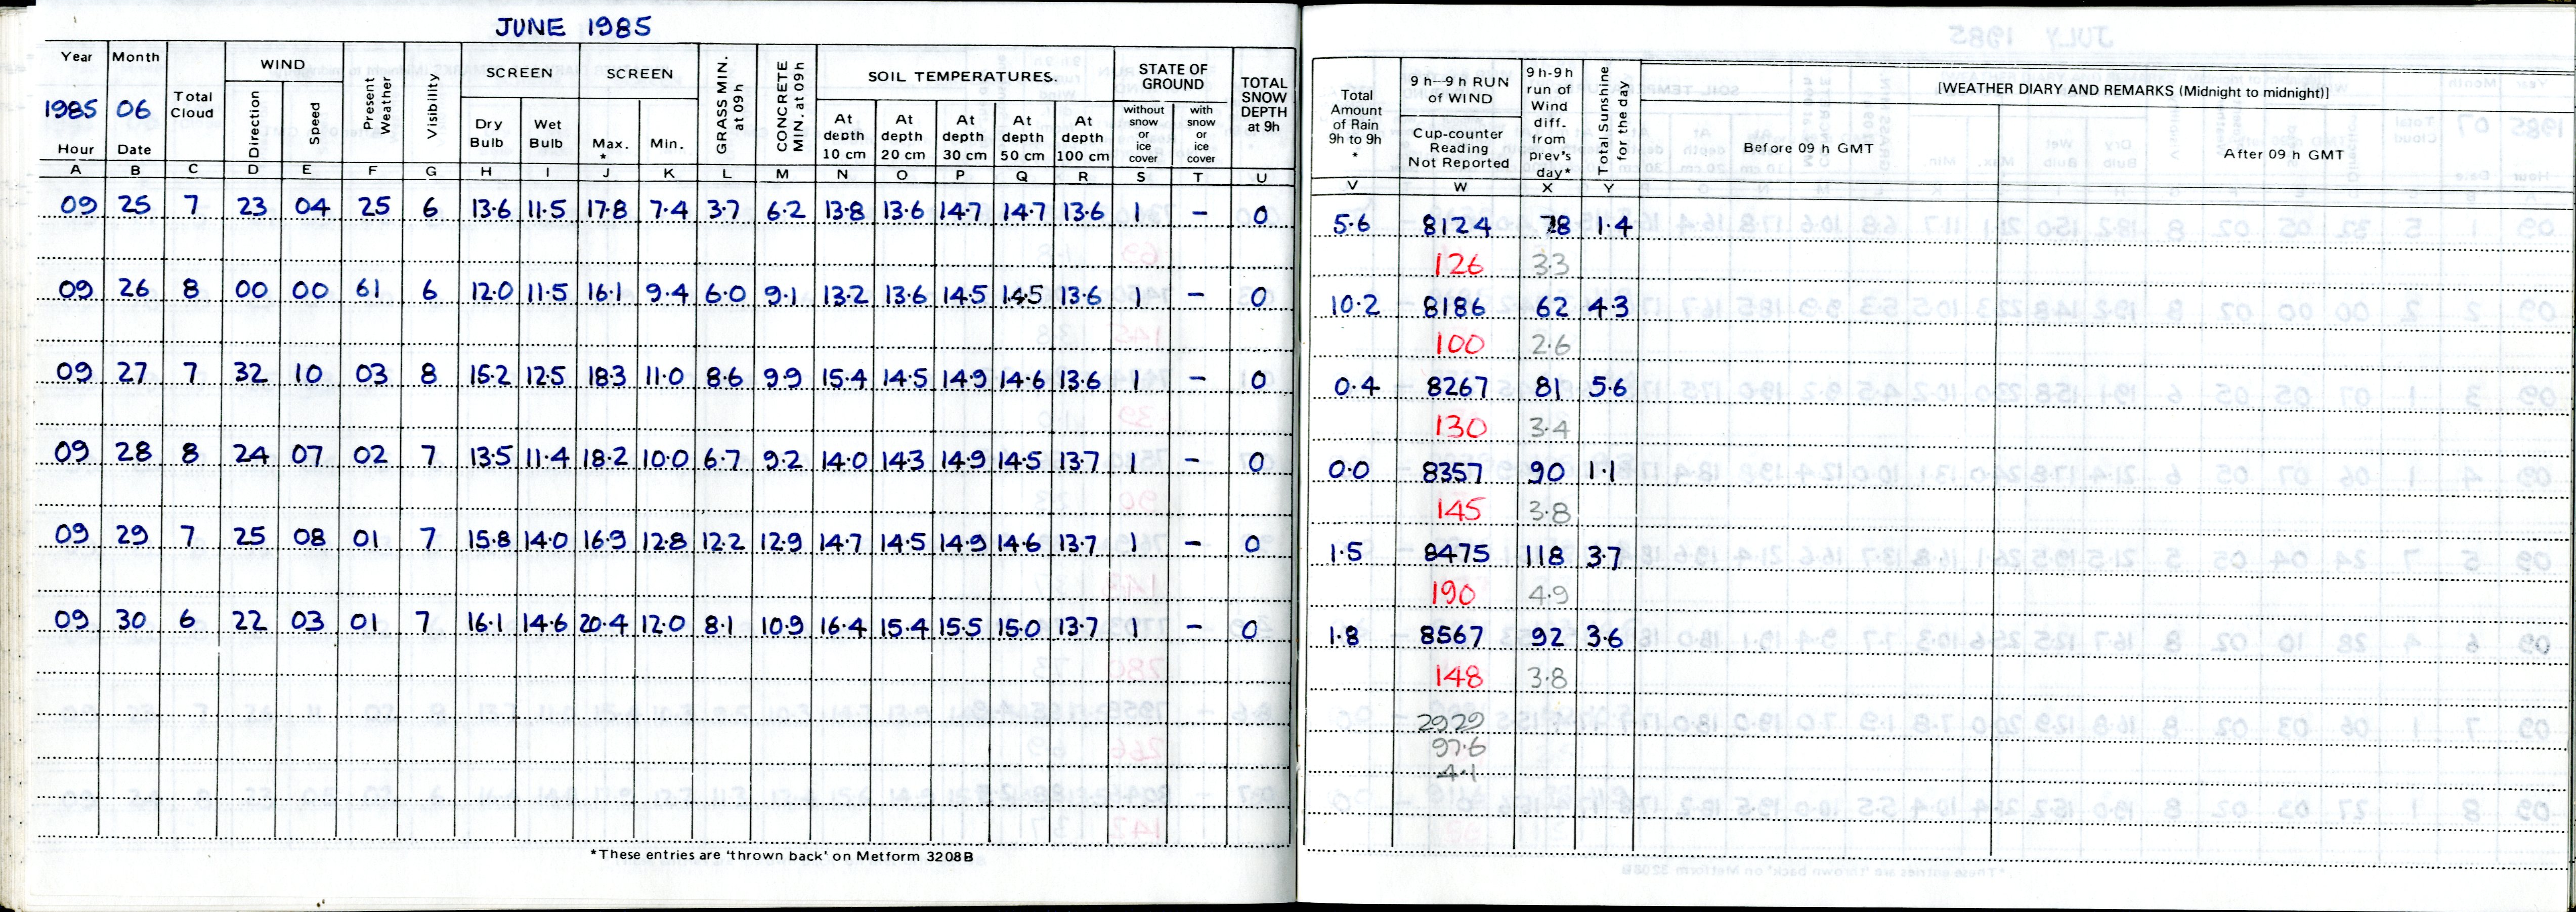 JUNE 1985
Year Month Total Cloud WIND Present Weather Visibility SCREEN SCREEN GRASS MIN. at 09h CONCRETE MIN. at 09h SOIL TEMPERATURES. STATE OF GROUND TOTAL SNOW DEPTH at 9h
1985 06 Direction Speed Dry Bulb Wet Bulb Max. * Min. At depth 10 cm At depth 20 cm At depth 30 cm At depth 50 cm At depth 100 cm without snow or ice cover with snow or ice cover
Hour Date
A B C D E F G H I J K L M N O P Q R S T U
09 25 7 23 04 25 6 13.6 11.5 17.8 7.4 3.7 6.2 13.8 13.6 14.7 14.7 13.6 1 – 0
09 26 8 00 00 61 6 12.0 11.5 16.1 9.4 6.0 9.1 13.2 13.6 14.5 14.5 13.6 1 – 0
09 27 7 32 10 03 8 15.2 12.5 18.3 11.0 8.6 9.9 15.4 14.5 14.9 14.6 13.6 1 – 0
09 28 8 24 07 02 7 13.5 11.4 18.2 10.0 6.7 9.2 14.0 14.3 14.9 14.5 13.7 1 – 0
09 29 7 25 08 01 7 15.8 14.0 16.9 12.8 12.2 12.9 14.7 14.5 14.9 14.6 13.7 1 – 0
09 30 6 22 03 01 7 16.1 14.6 20.4 12.0 8.1 10.9 16.4 15.4 15.5 15.0 13.7 1 – 0
*These entries are 'thrown back' on Metform 3208B
Total Amount of Rain 9h to 9h * 9 h–9 h RUN of WIND Cup-counter Reading Not Reported 9 h-9 h run of Wind diff. from prev's day* Total Sunshine for the day [WEATHER DIARY AND REMARKS (Midnight to midnight)]
Before 09 h GMT After 09 h GMT
V W X Y
5.6 8124 78 1.4
126 3.3
10.2 8186 62 4.3
100 2.6
0.4 8267 81 5.6
130 3.4
0.0 8357 90 1.1
145 3.8
1.5 8475 118 3.7
190 4.9
1.8 8567 92 3.6
148 3.8
2929
97.6
4.1